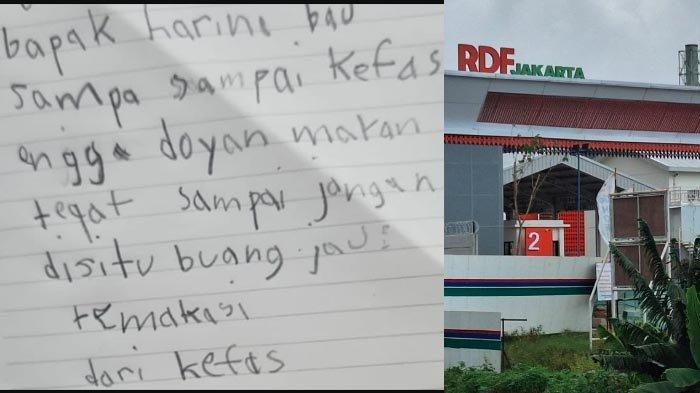 bapak harini bau
sampa sampai kefas
engga doyan makan
tegat sampai jangan
disitu buang jau
temakasi
dari kefas
RDF JAKARTA
2